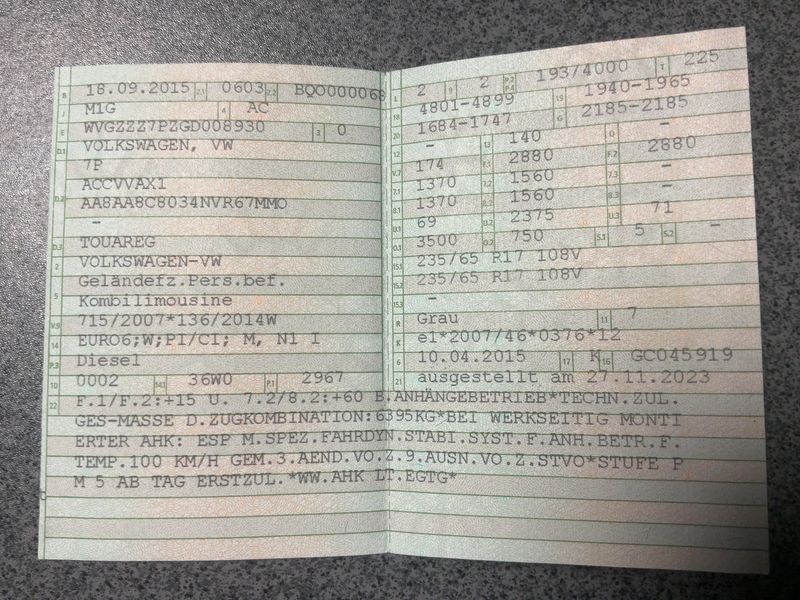 B 18.09.2015 2.1 0603 2.2 BQO000068
J M1G 4 AC
E WVGZZZ7PZGD008930 3 0
D.1 VOLKSWAGEN, VW
7P
D.2 ACCVVAX1
AA8AA8C8034NVR67MMO
-
D.3 TOUAREG
2 VOLKSWAGEN-VW
5 Geländefz.Pers.bef.
Kombilimousine
V.9 715/2007*136/2014W
14 EURO6;W;PI/CI; M, N1 I
P.3 Diesel
10 0002 14.1 36W0 P.1 2967
L 2 9 2 P.2 P.4 193/4000 T 225
18 4801-4899 19 1940-1965
20 1684-1747 G 2185-2185
12 - 13 140 Q -
V.7 174 F.1 2880 F.2 2880
7.1 1370 7.2 1560 7.3 -
8.1 1370 8.2 1560 8.3 -
U.1 69 U.2 2375 U.3 71
O.1 3500 O.2 750 S.1 5 S.2 -
15.1 235/65 R17 108V
15.2 235/65 R17 108V
15.3 -
R Grau 11 7
K e1*2007/46*0376*12
6 10.04.2015 17 K 16 GC045919
21 ausgestellt am 27.11.2023
22 F.1/F.2:+15 U. 7.2/8.2:+60 B.ANHÄNGEBETRIEB*TECHN.ZUL.
GES-MASSE D.ZUGKOMBINATION:6395KG*BEI WERKSEITIG MONTI
ERTER AHK: ESP M.SPEZ.FAHRDYN.STABI.SYST.F.ANH.BETR.F.
TEMP.100 KM/H GEM.3.AEND.VO.Z.9.AUSN.VO.Z.STVO*STUFE P
M 5 AB TAG ERSTZUL.*WW.AHK LT.EGTG*